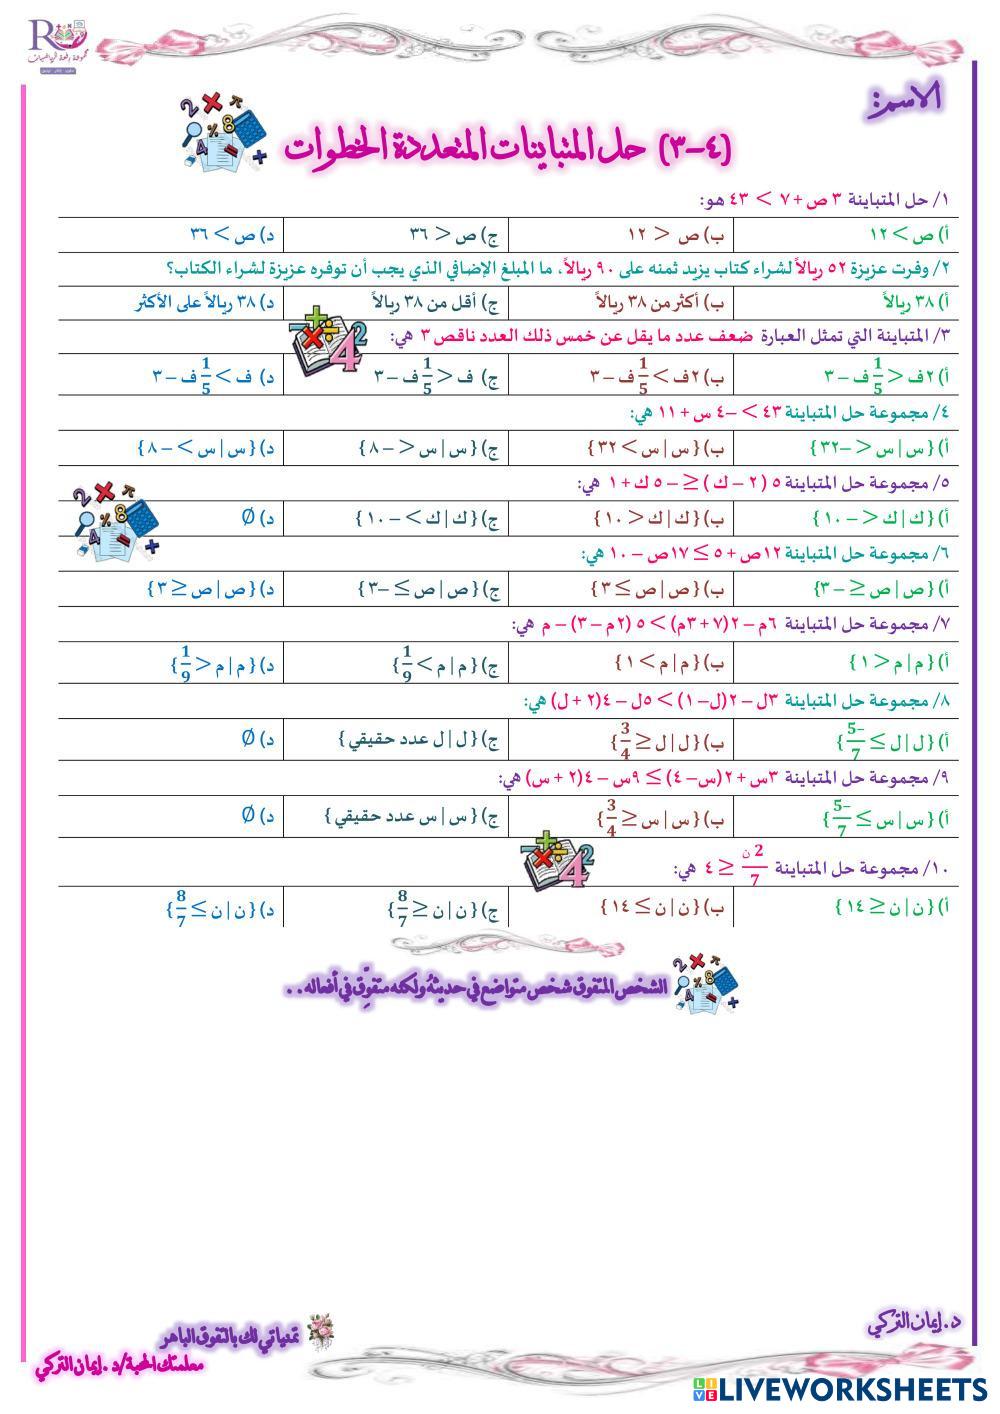 R
مجموعة رفعة الرياضيات
الاسم:
(٤–٣) حل المتباينات المتعددة الخطوات
١/ حل المتباينة ٣ ص + ٧ > ٤٣ هو:
أ) ص > ١٢ ب) ص < ١٢ ج) ص < ٣٦ د) ص > ٣٦
٢/ وفرت عزيزة ٥٢ ريالاً لشراء كتاب يزيد ثمنه على ٩٠ ريالاً، ما المبلغ الإضافي الذي يجب أن توفره عزيزة لشراء الكتاب؟
أ) ٣٨ ريالاً ب) أكثر من ٣٨ ريالاً ج) أقل من ٣٨ ريالاً د) ٣٨ ريالاً على الأكثر
٣/ المتباينة التي تمثل العبارة ضعف عدد ما يقل عن خمس ذلك العدد ناقص ٣ هي:
أ) ٢ف < 1/5 ف – ٣ ب) ٢ف > 1/5 ف – ٣ ج) ف < 1/5 ف – ٣ د) ف > 1/5 ف – ٣
٤/ مجموعة حل المتباينة ٤٣ > –٤ س + ١١ هي:
أ) {س | س < –٣٢} ب) {س | س > ٣٢} ج) {س | س < –٨} د) {س | س > –٨}
٥/ مجموعة حل المتباينة ٥ (٢ – ك) ≥ –٥ ك + ١ هي:
أ) {ك | ك < –١٠} ب) {ك | ك < ١٠} ج) {ك | ك > –١٠} د) Ø
٦/ مجموعة حل المتباينة ١٢ص + ٥ ≤ ١٧ص – ١٠ هي:
أ) {ص | ص ≥ –٣} ب) {ص | ص ≤ ٣} ج) {ص | ص ≤ –٣} د) {ص | ص ≥ ٣}
٧/ مجموعة حل المتباينة ٦م – ٢(٧ + ٣م) > ٥ (٢م – ٣) – م هي:
أ) {م | م < ١} ب) {م | م > ١} ج) {م | م > 1/9} د) {م | م < 1/9}
٨/ مجموعة حل المتباينة ٣ل – ٢(ل–١) > ٥ل – ٤(٢ + ل) هي:
أ) {ل | ل ≤ –5/7} ب) {ل | ل ≥ 3/4} ج) {ل | ل عدد حقيقي} د) Ø
٩/ مجموعة حل المتباينة ٣س + ٢(س– ٤) ≤ ٩س – ٤(٢ + س) هي:
أ) {س | س ≤ –5/7} ب) {س | س ≥ 3/4} ج) {س | س عدد حقيقي} د) Ø
١٠/ مجموعة حل المتباينة 2 ن/7 ≥ ٤ هي:
أ) {ن | ن ≥ ١٤} ب) {ن | ن ≤ ١٤} ج) {ن | ن ≥ 8/7} د) {ن | ن ≤ 8/7}
الشخص المتفوق شخص متواضع في حديثهُ ولكنه متفوِّق في أفعاله . .
د. إيمان التركي
تمنياتي لك بالتفوق الباهر
معلمتك المحبة/د. إيمان التركي
LIVEWORKSHEETS